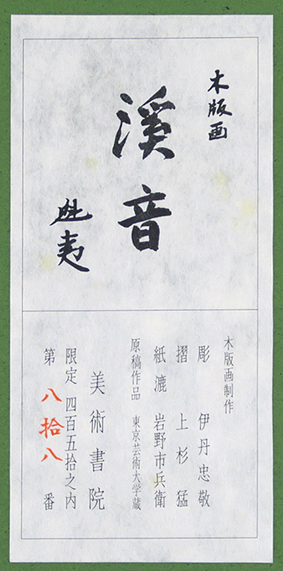 木版画
溪音
魁夷
木版画制作
彫 伊丹忠敬
摺 上杉猛
紙漉 岩野市兵衛
原稿作品 東京芸術大学蔵
美術書院
限定 四百五拾之内
第 八拾八 番